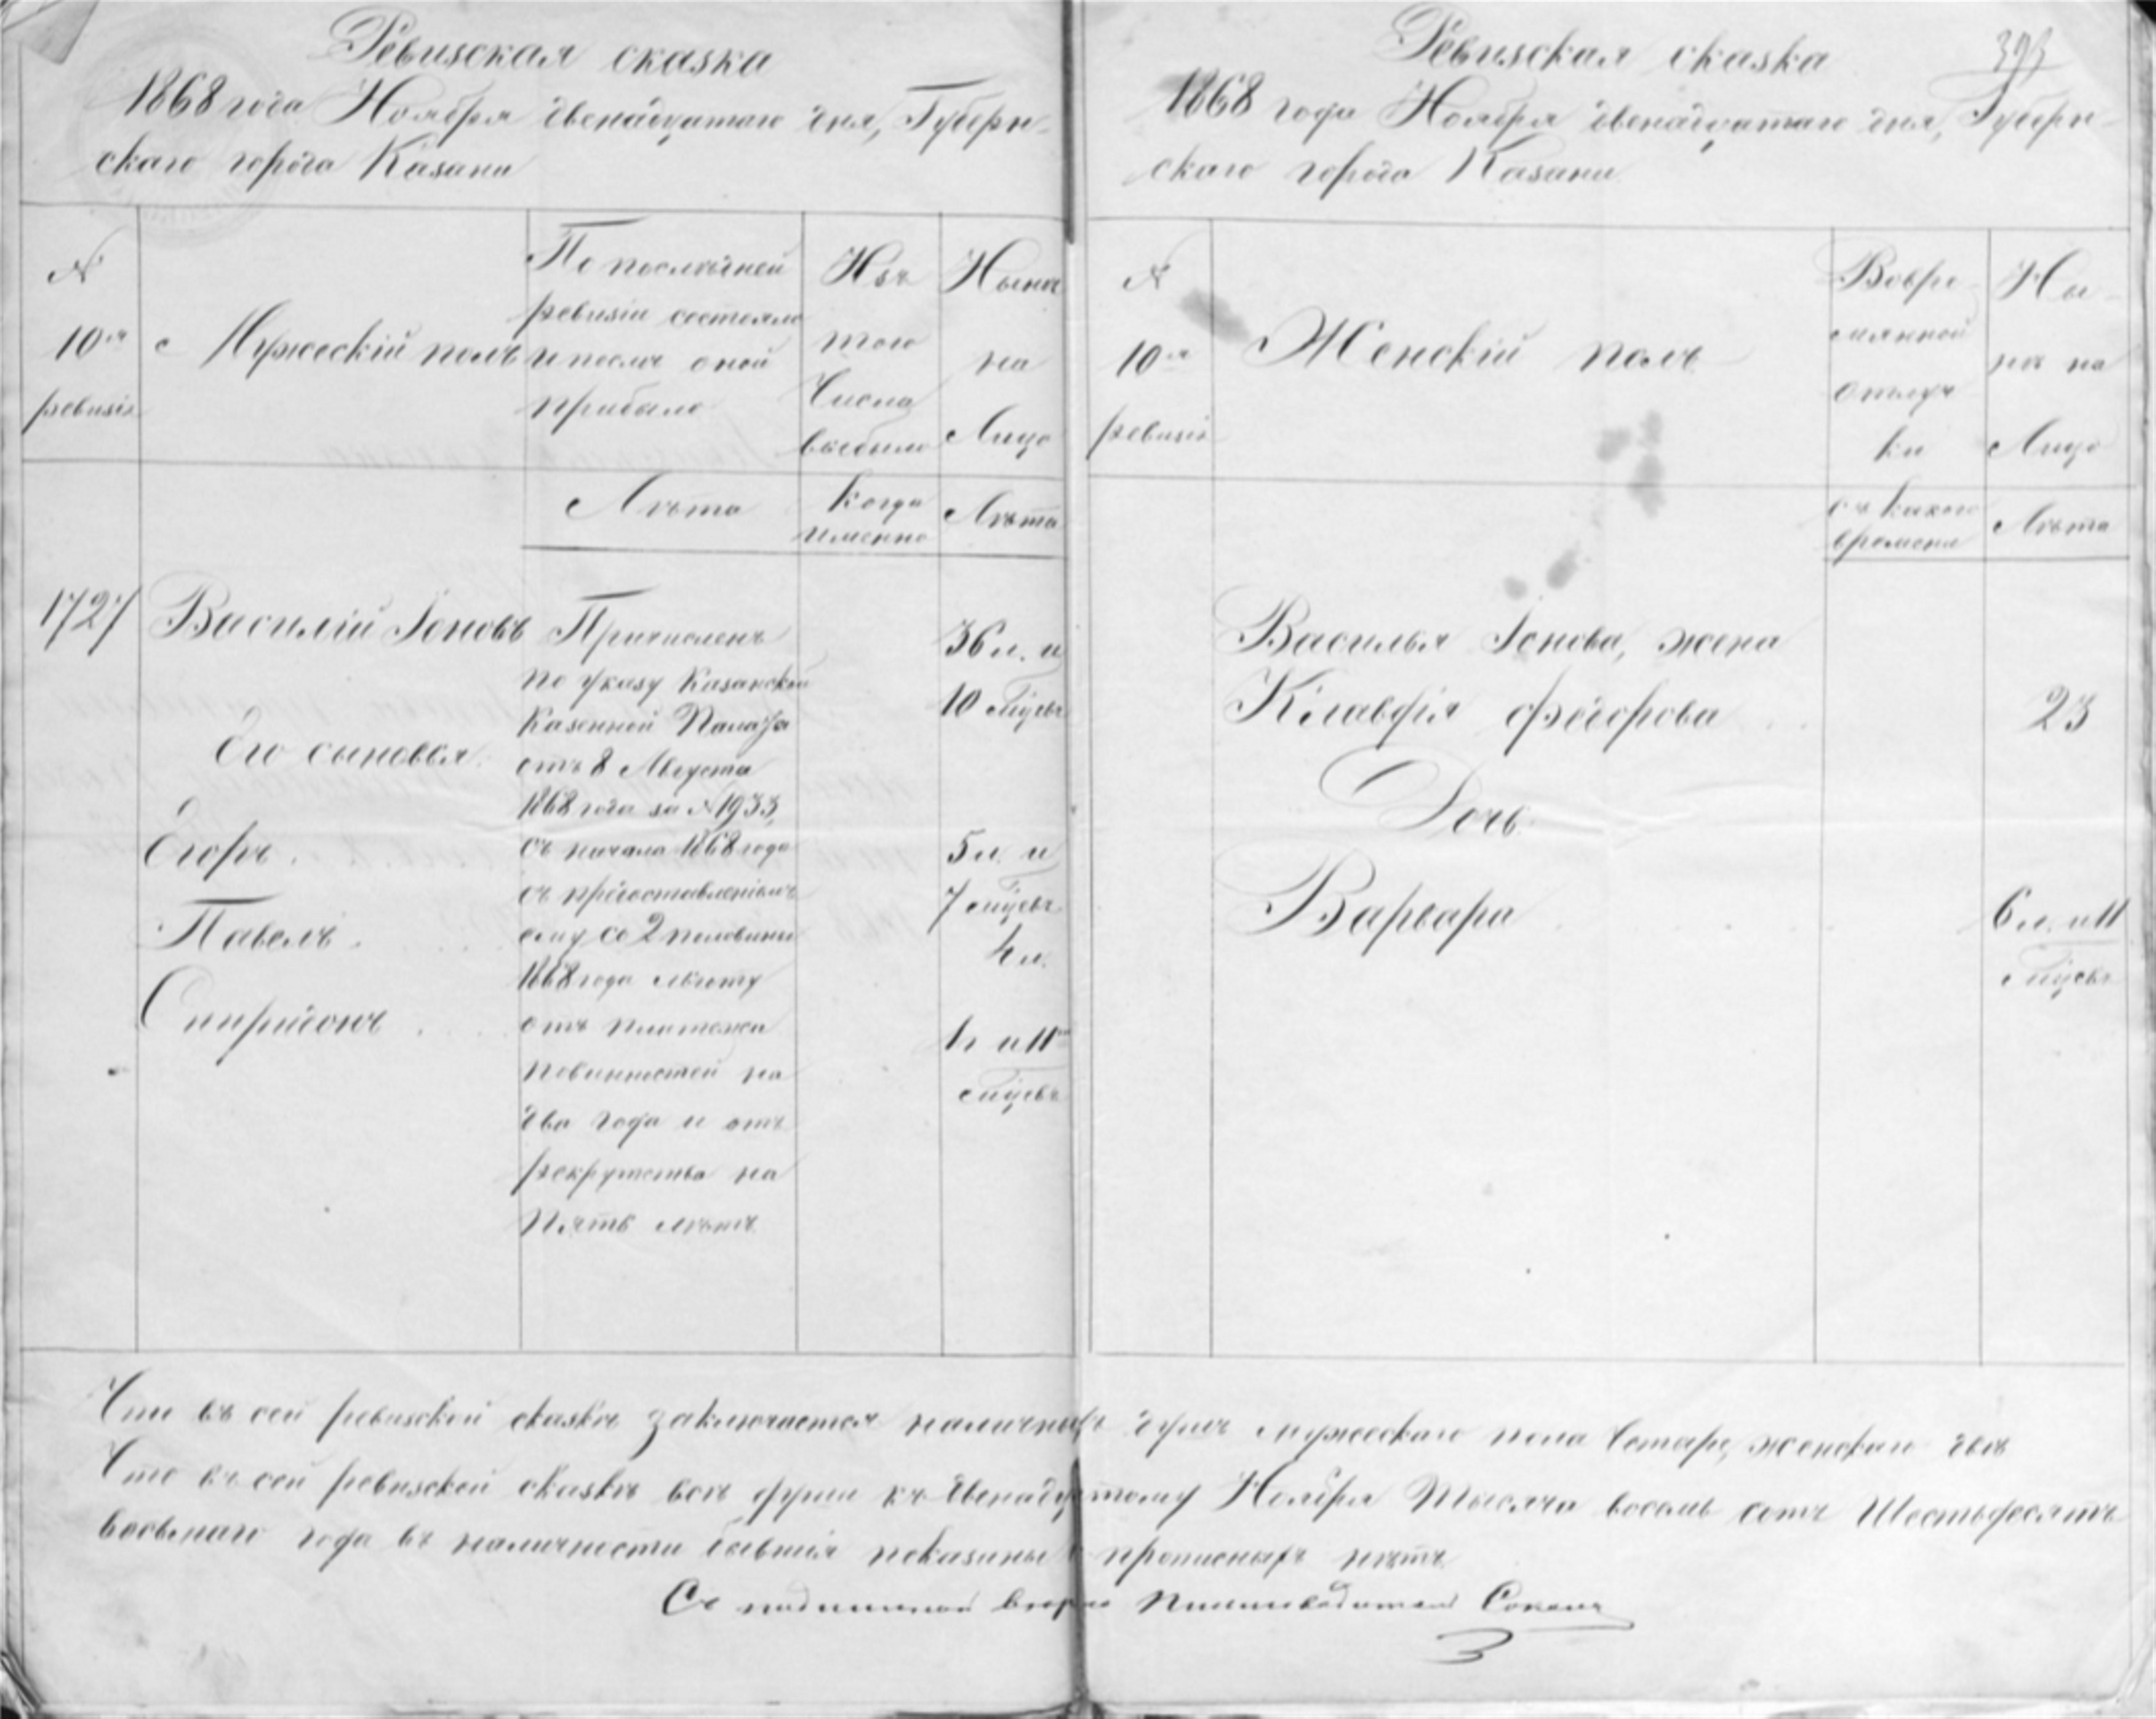 Ревизская сказка
1868 года Ноября двенадцатаго дня, Губерн-
скаго города Казани
№
10й
ревизіи
Мужескій полъ
По послѣдней
ревизіи состояло
и послѣ оной
прибыло
Изъ
того
Числа
выбыло
Нынѣ
на
Лицо
Лѣта
Когда
именно
Лѣта
1727
Василій Іоновъ
Его сыновья
Егоръ
Павелъ
Спиридонъ
Причисленъ
по указу Казанской
Казенной Палаты
отъ 8 Августа
1868 года за №1933,
съ начала 1868 года
съ предоставленіемъ
ему со 2 половины
1868 года льготу
отъ платежа
повинностей на
два года и отъ
рекрутства на
пять лѣтъ
36 л. и
10 мѣцевъ
5 л. и
7 мѣцевъ
4 л.
1 г. и 11
мѣцевъ
Ревизская сказка
1868 года Ноября двенадцатаго дня, Губерн-
скаго города Казани
№
10й
ревизіи
Женскій полъ
Вовре-
мянной
отлуч
ки
Ны-
нѣ на
Лицо
съ какого
времени
Лѣта
Василья Іонова, жена
Клавдія Федорова
23
Дочь
Варвара
6 л. и 11
мѣцевъ
Что въ сей ревизской сказкѣ заключается наличныхъ душъ мужескаго пола Четыре, женскаго двѣ
Что въ сей ревизской сказкѣ всѣ души къ двенадцатому Ноября Тысяча восемь сотъ Шестьдесятъ
восьмаго года въ наличности бывшія показаны и прописныхъ нѣтъ.
Съ подлинной верно